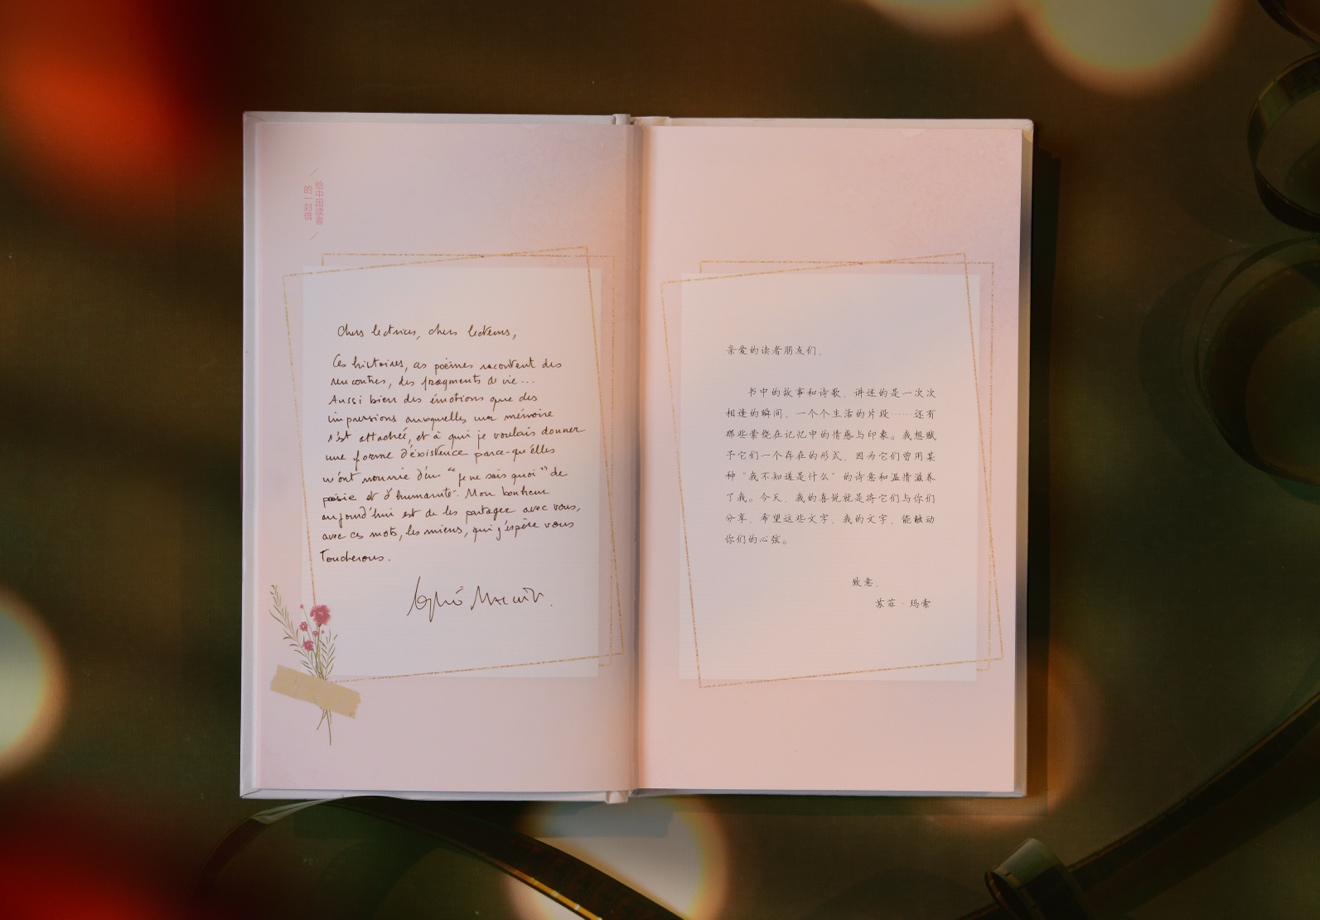 给中国读者
的一封信
Chers lectrices, chers lecteurs,
Ces histoires, ces poèmes racontent des
rencontres, des fragments de vie...
Aussi bien des émotions que des
impressions auxquelles ma mémoire
s'est attachée, et à qui je voulais donner
une forme d'existence parce-qu'elles
m'ont nourrie d'un "je ne sais quoi" de
poésie et d'humanité. Mon bonheur
aujourd'hui est de les partager avec vous,
avec ces mots, les miens, qui j'espère vous
toucherons.
亲爱的读者朋友们，
书中的故事和诗歌，讲述的是一次次
相逢的瞬间，一个个生活的片段……还有
那些萦绕在记忆中的情感与印象。我想赋
予它们一个存在的形式，因为它们曾用某
种“我不知道是什么”的诗意和温情滋养
了我。今天，我的喜悦就是将它们与你们
分享，希望这些文字，我的文字，能触动
你们的心弦。
致意，
苏菲·玛索